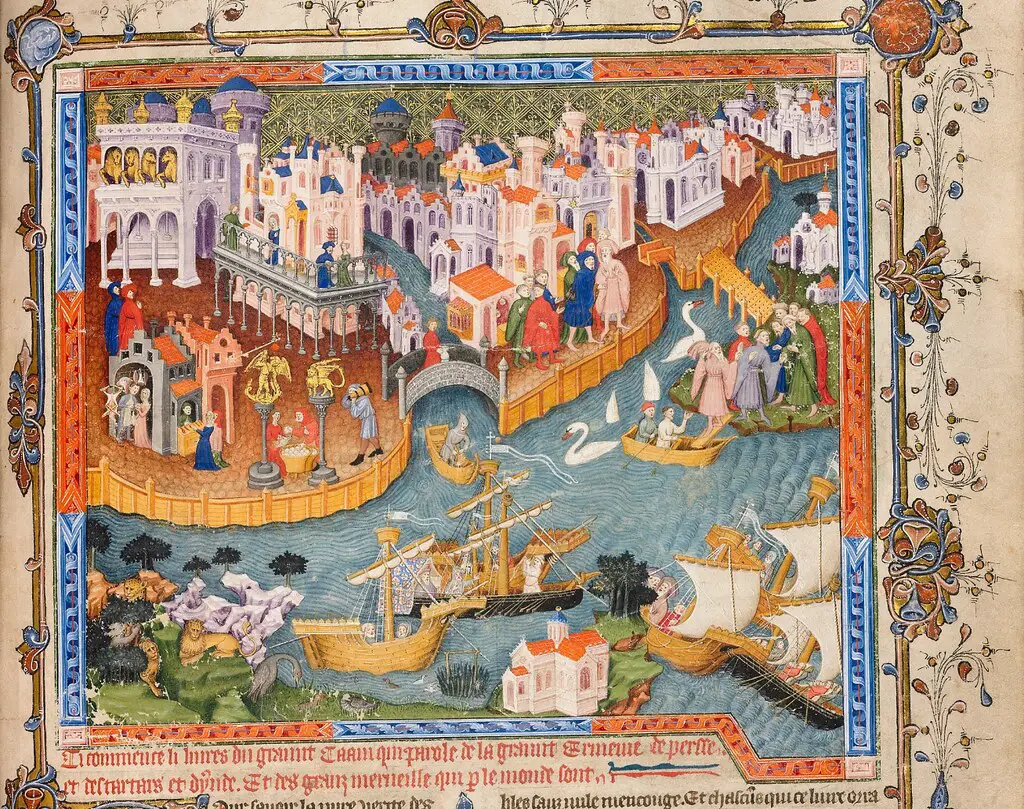 Ci commence li liures du graunt Caam qui parole de la graunt Ermenie de persse
et des tartars et d'ynde. Et des granz merueille qui p le monde sont
Our sauoir la pure verite des
bles sanz nule mencouge. Et chascuns qui ce liure orra